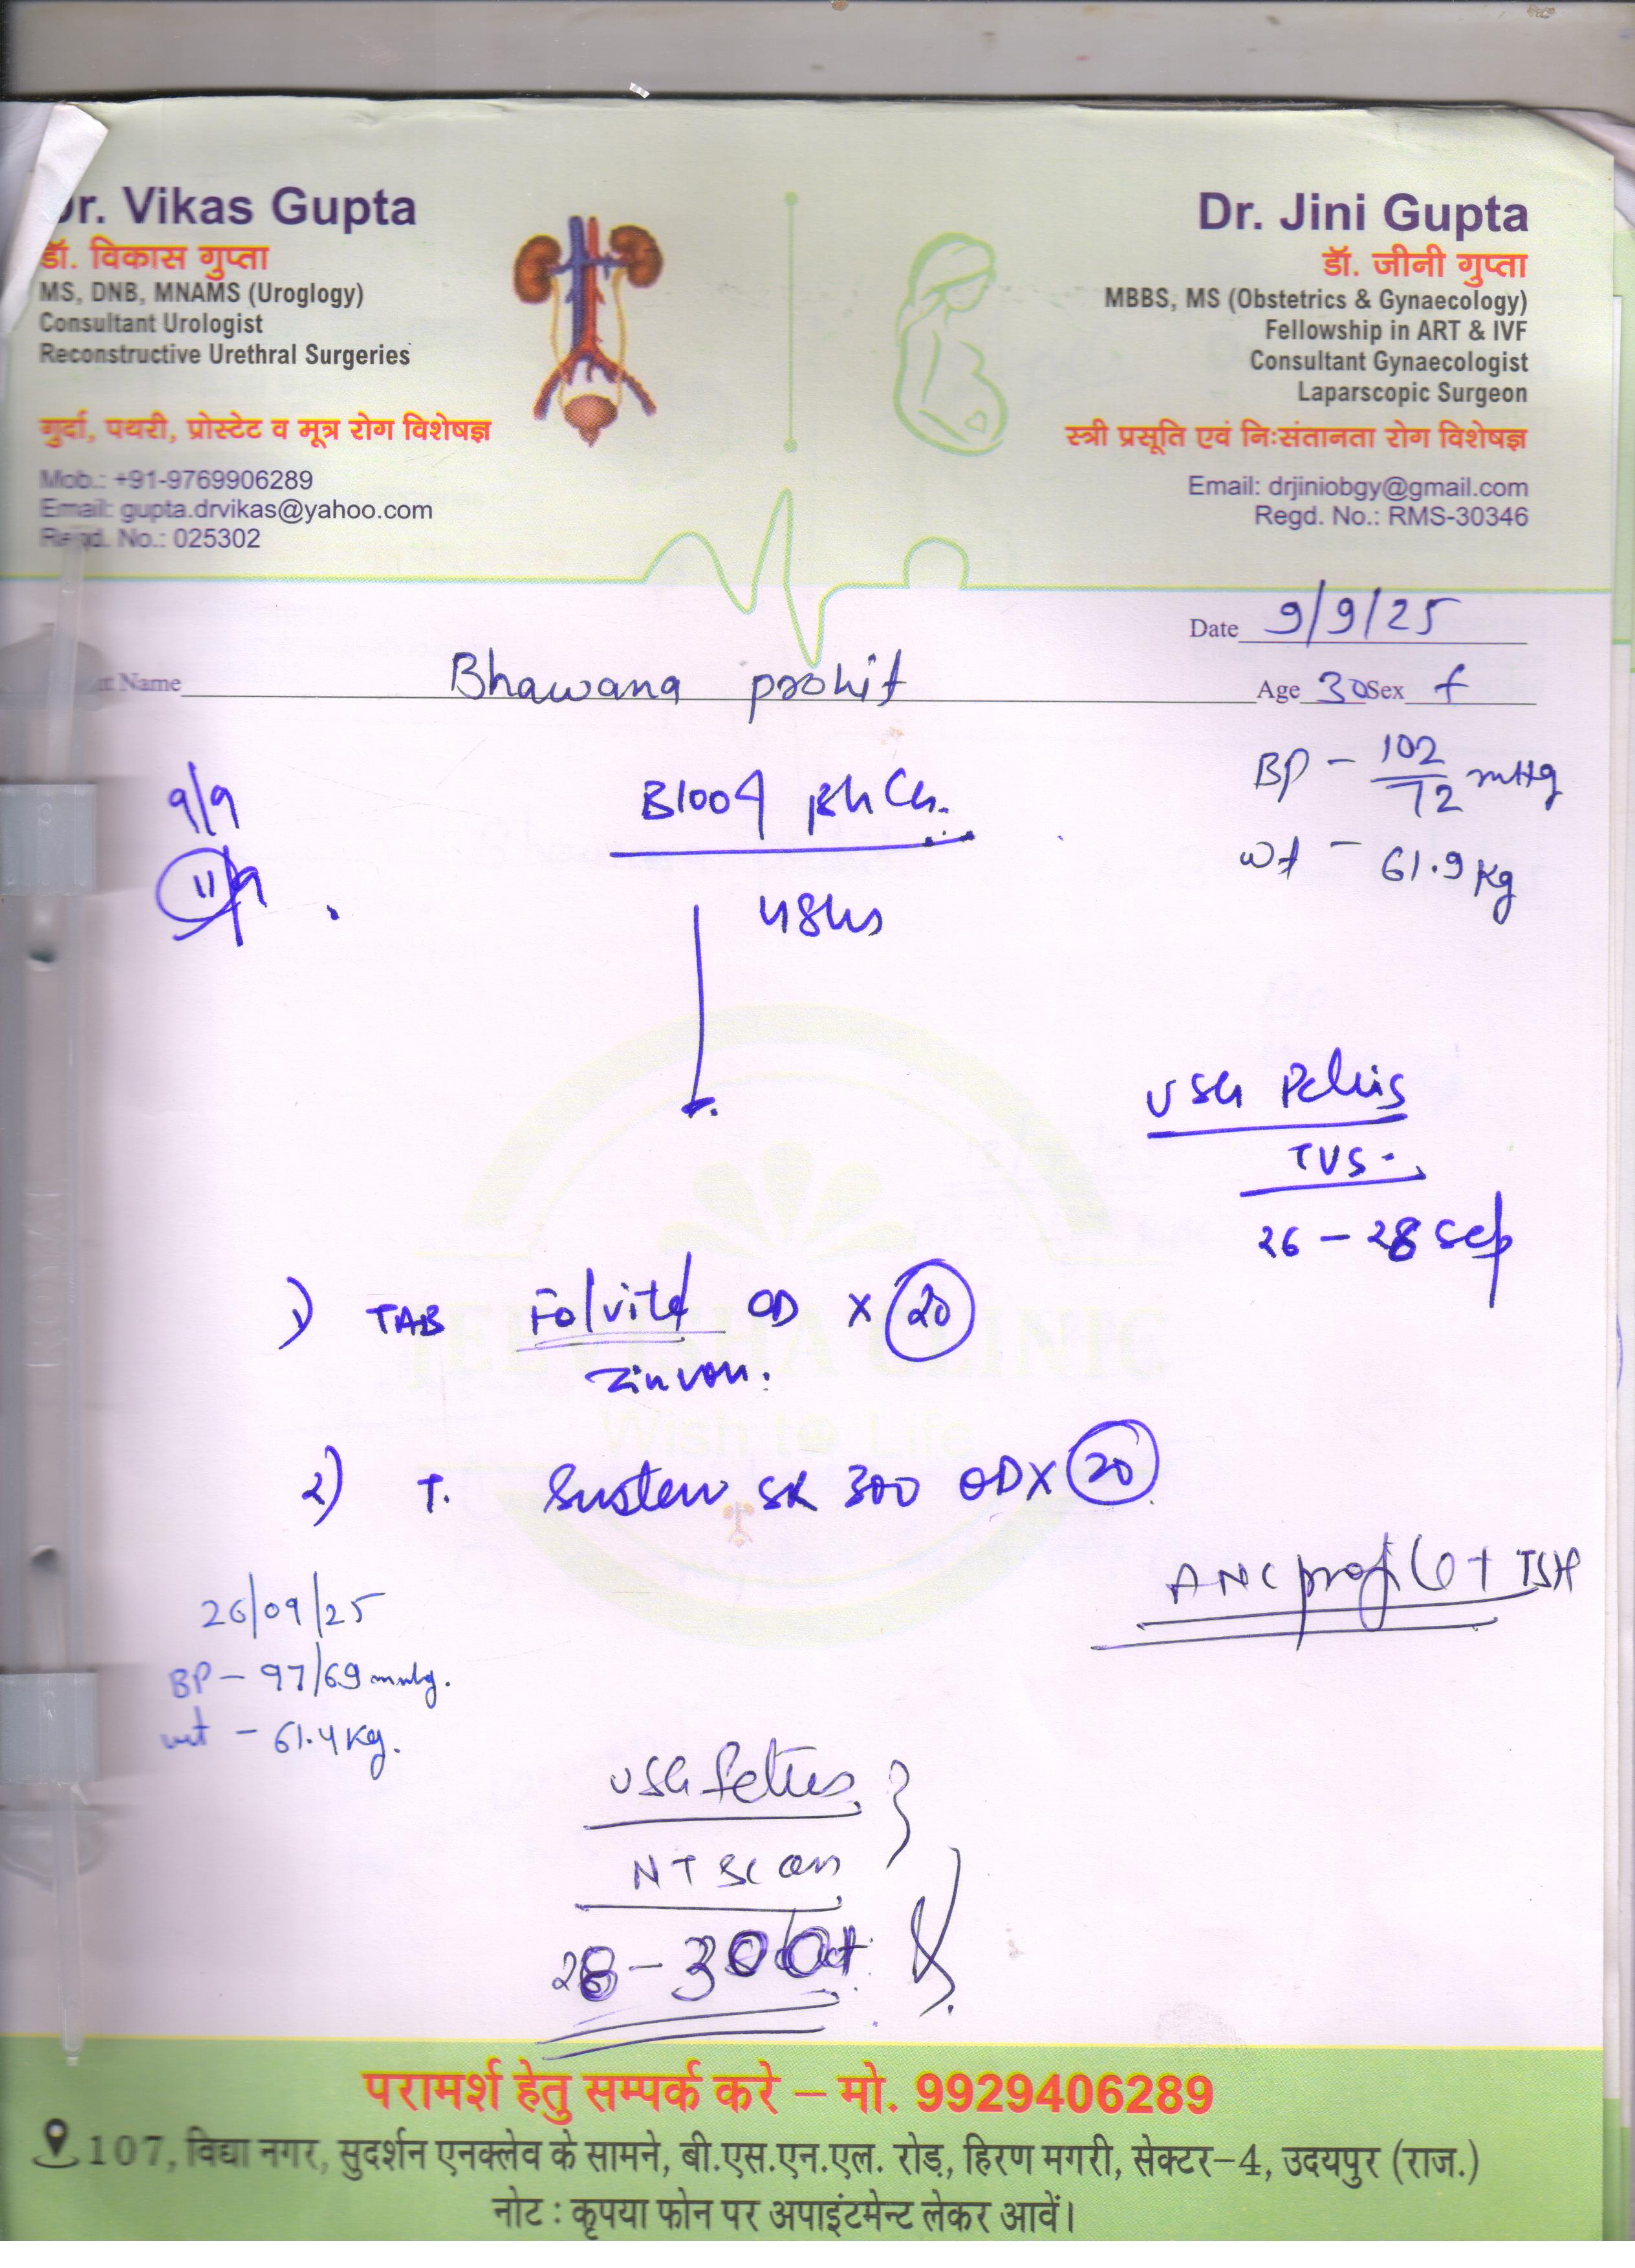 Dr. Vikas Gupta
डॉ. विकास गुप्ता
MS, DNB, MNAMS (Uroglogy)
Consultant Urologist
Reconstructive Urethral Surgeries
गुर्दा, पथरी, प्रोस्टेट व मूत्र रोग विशेषज्ञ
Mob.: +91-9769906289
Email: gupta.drvikas@yahoo.com
Regd. No.: 025302
Dr. Jini Gupta
डॉ. जीनी गुप्ता
MBBS, MS (Obstetrics & Gynaecology)
Fellowship in ART & IVF
Consultant Gynaecologist
Laparscopic Surgeon
स्त्री प्रसूति एवं निःसंतानता रोग विशेषज्ञ
Email: drjiniobgy@gmail.com
Regd. No.: RMS-30346
Date 9/9/25
Name Bhawana prohit
Age 30 Sex f
BP - 102/72 mmHg
wt - 61.9 kg
9/9
11/9
Blood
48hs
USG Pelvis
TVS.
26 - 28 Sep
1) TAB Folvite OD x 20
2) T. Susten SR 300 OD x 20
ANC profile + TSH
26/09/25
BP - 97/69 mmhg.
wt - 61.4 kg.
USG fetus
NT scan
28 - 30 Oct
JEEVISHA CLINIC
Wish to Life
परामर्श हेतु सम्पर्क करे – मो. 9929406289
107, विद्या नगर, सुदर्शन एनक्लेव के सामने, बी.एस.एन.एल. रोड़, हिरण मगरी, सेक्टर-4, उदयपुर (राज.)
नोट : कृपया फोन पर अपाइंटमेन्ट लेकर आवें।